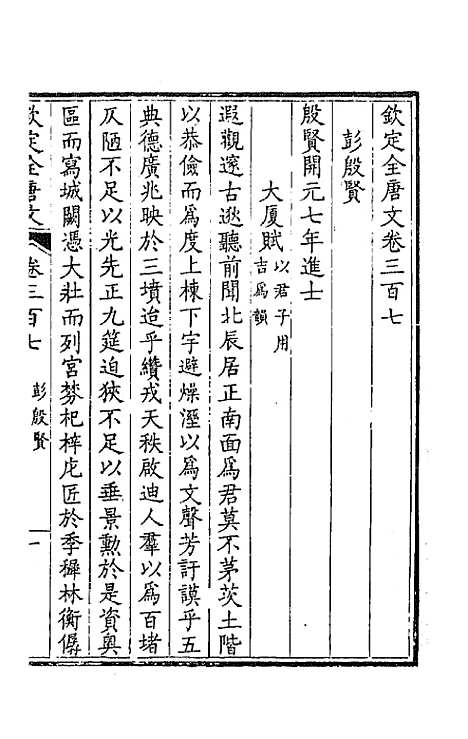 欽定全唐文卷三百七
彭殷賢
殷賢開元七年進士
大厦賦以君子用吉爲韻
遐觀邃古逖聽前聞北辰居正南面爲君莫不茅茨土階
以恭儉而爲度上棟下宇避燥溼以爲文聲芳訏謨乎五
典德廣兆映於三墳迨乎纘戎天秩啟迪人羣以爲百堵
仄陋不足以光先正九筵迫狹不足以垂景勳於是資奥
區而寫城闕憑大壯而列宮棼杞梓庀匠於季穉林衡僝
欽定全唐文 卷三百七 彭殷賢 一